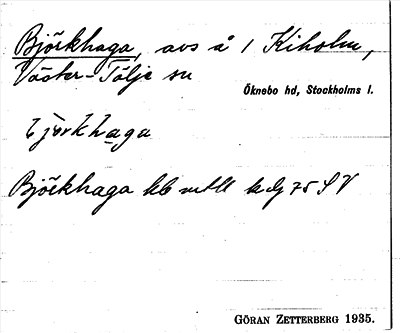 Björkhaga, avs å 1 Kiholm,
Väster-Tälje sn
Öknebo hd, Stockholms l.
bjørkhaga
Björkhaga kb
GÖRAN ZETTERBERG 1935.